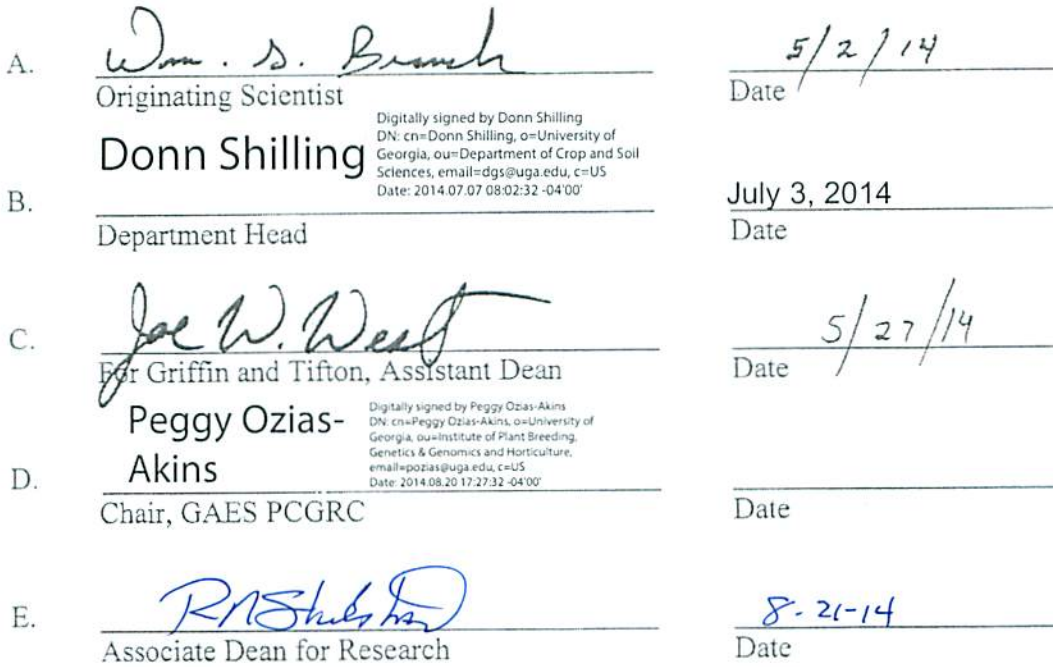 A. Wm. D. Branch 5/2/14
Originating Scientist Date
Donn Shilling
Digitally signed by Donn Shilling
DN: cn=Donn Shilling, o=University of
Georgia, ou=Department of Crop and Soil
Sciences, email=dgs@uga.edu, c=US
Date: 2014.07.07 08:02:32 -04'00'
B. July 3, 2014
Department Head Date
C. Joe W. West 5/27/14
For Griffin and Tifton, Assistant Dean Date
Peggy Ozias-
Akins
Digitally signed by Peggy Ozias-Akins
DN: cn=Peggy Ozias-Akins, o=University of
Georgia, ou=Institute of Plant Breeding,
Genetics & Genomics and Horticulture,
email=pozias@uga.edu, c=US
Date: 2014.08.20 17:27:32 -04'00'
D.
Chair, GAES PCGRC Date
E. 8-21-14
Associate Dean for Research Date